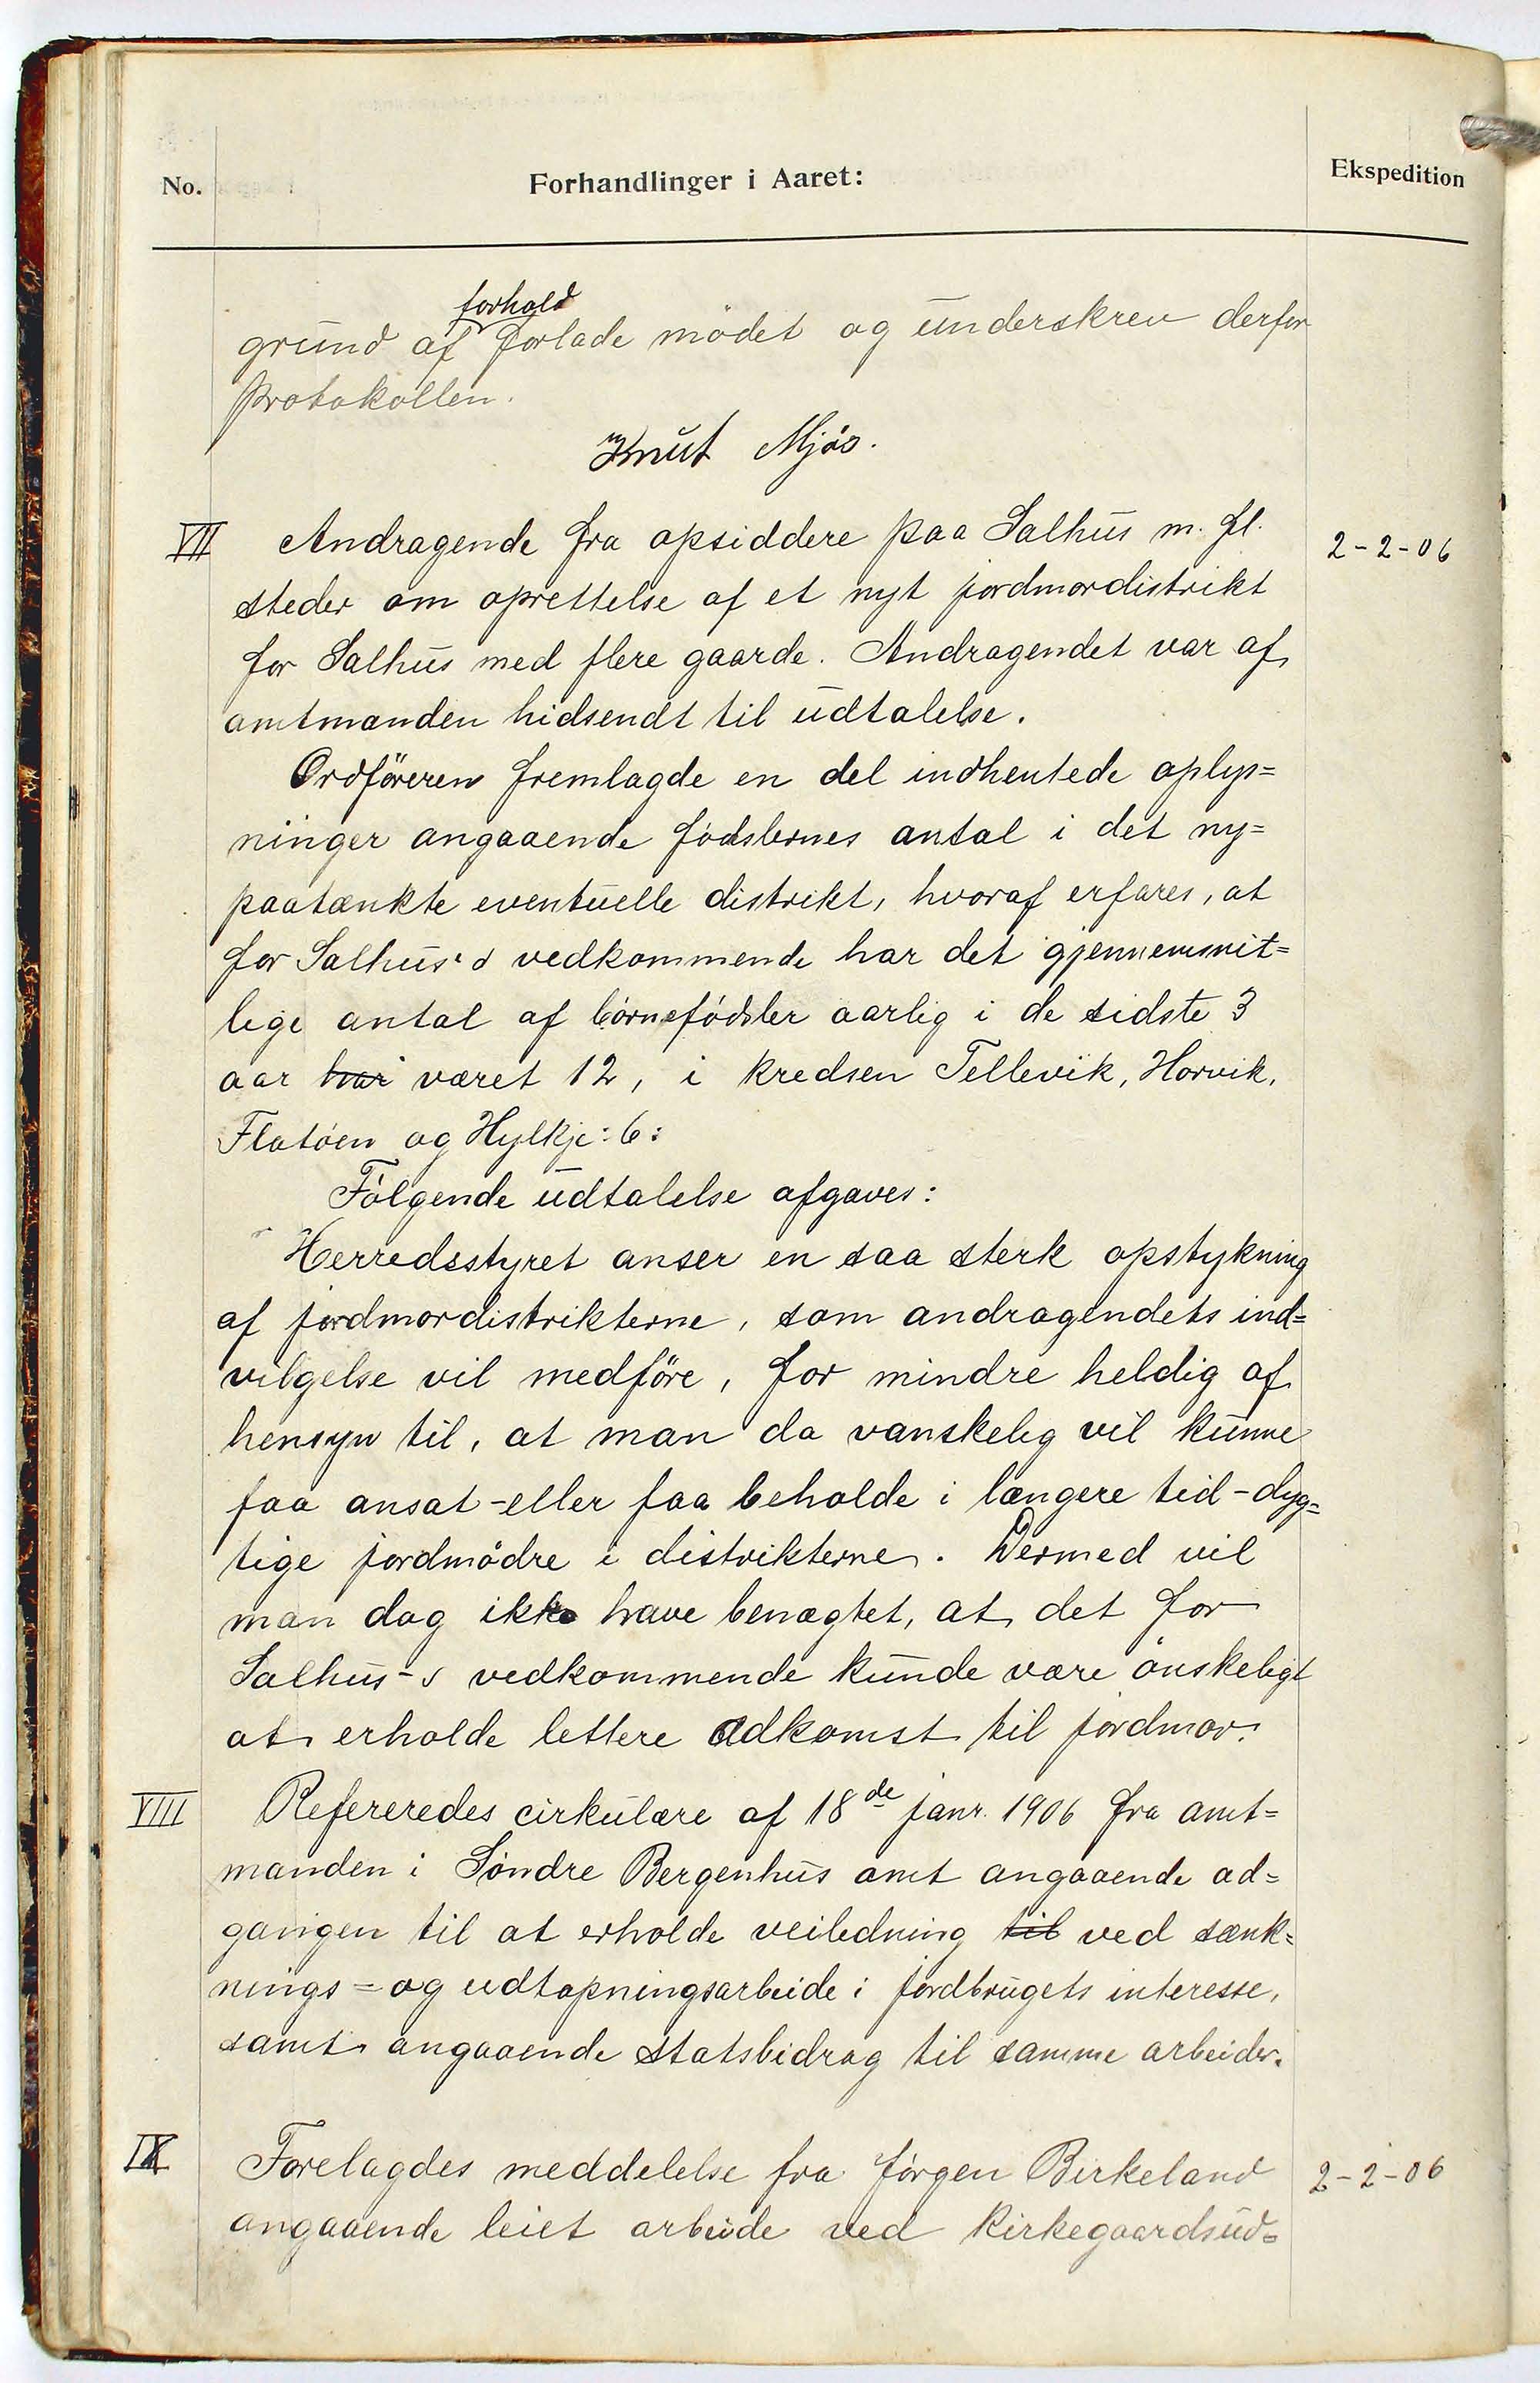 No.
Forhandlinger i Aaret:
Ekspedition
forhold
grund af forlade mödet og underskrev derfor
protokollen.
Knut Mjös.
VII Andragende fra opsiddere paa Salhus m. fl. 2-2-06
steder om oprettelse af et nyt jordmordistrikt
for Salhus med flere gaarde. Andragendet var af
amtmanden hidsendt til udtalelse.
Ordföreren fremlagde en del indhentede oplys=
ninger angaaende fødslernes antal i det ny=
paatænkte eventuelle distrikt, hvoraf erfares, at
for Salhus's vedkommende har det gjennemsnit=
lige antal af børnefødsler aarlig i de sidste 3
aar har været 12, i kredsen Tellevik, Horvik,
Flatøen og Hylkje: 6:
Følgende udtalelse afgaves:
Herredsstyret anser en saa sterk opstykning
af jordmordistrikterne, som andragendets ind=
vilgelse vil medföre, for mindre heldig af
hensyn til, at man da vanskelig vil kunne
faa ansat - eller faa beholde i længere tid - dyg=
tige jordmödre i distrikterne. Dermed vil
man dog ikke have benægtet, at det for
Salhus-s vedkommende kunde være önskeligt
at erholde lettere adkomst til jordmor.
VIII Refereredes cirkulære af 18de janr. 1906 fra amt=
manden i Söndre Bergenhus amt angaaende ad=
gangen til at erholde veiledning til ved sænk=
nings= og udtapningsarbeide i jordbrugets interesse,
samt angaaende statsbidrag til samme arbeider.
IX Forelagdes meddelelse fra Jörgen Birkeland 2-2-06
angaaende leiet arbeide ved kirkegaardsud=